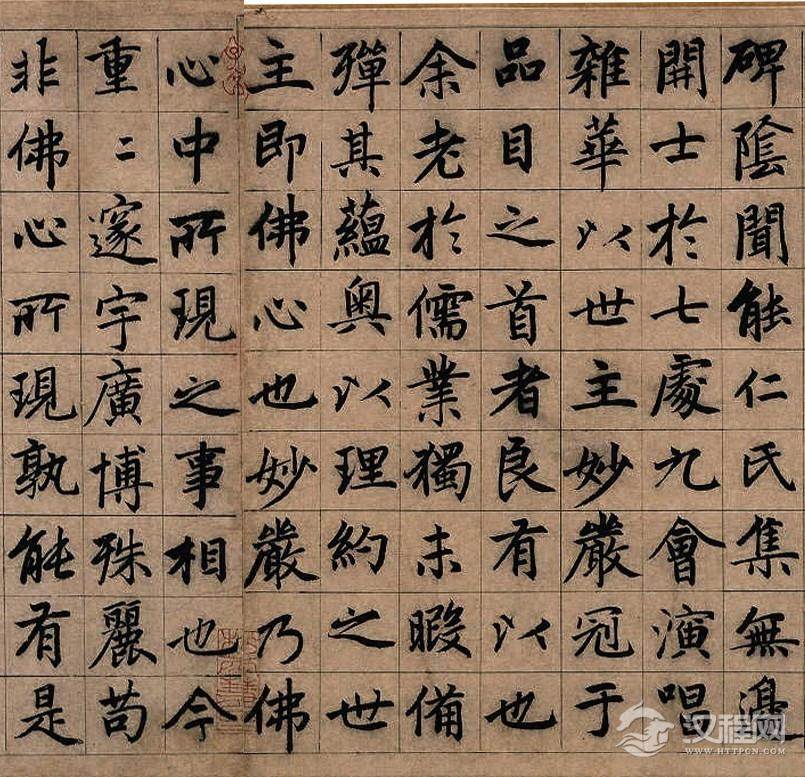 碑陰聞能仁氏集無邊
開士於七處九會演唱
雜華以世主妙嚴冠于
品目之首者良有以也
余老於儒業獨未暇備
殫其蘊奥以理約之世
主即佛心也妙嚴乃佛
心中所現之事相也今
重〻邃宇廣博殊麗苟
非佛心所現孰能有是
汉程网
WWW.HTTPCN.COM